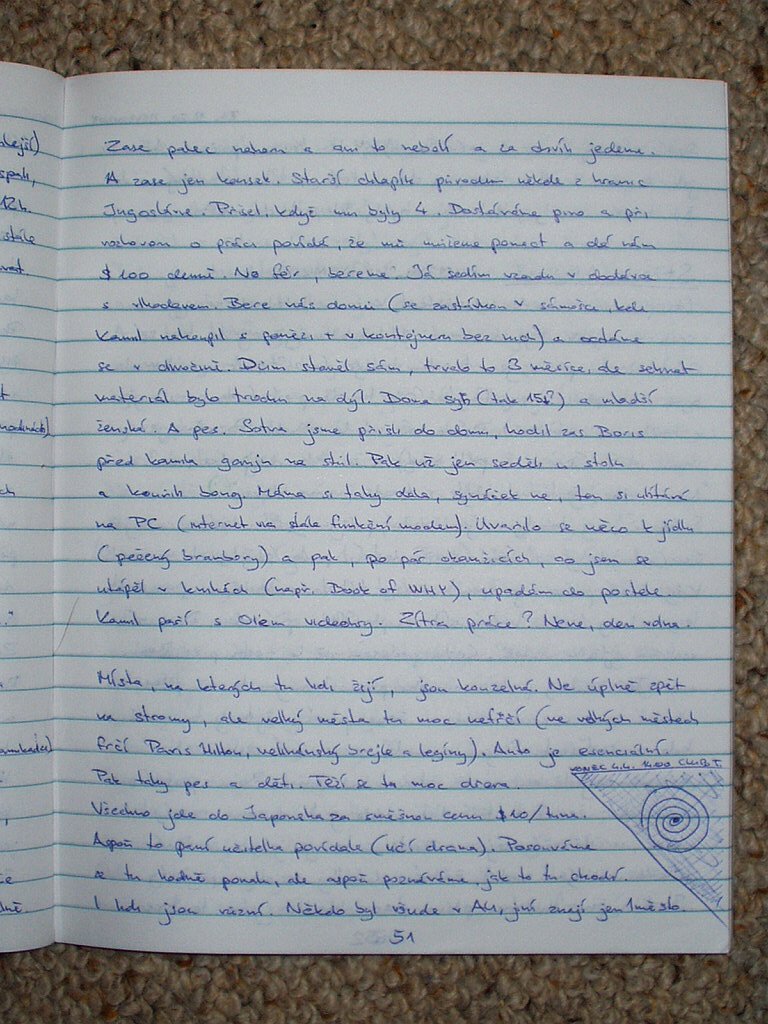 alejší)
spah,
12h.
stále
Zase palec nahoru a ani to nebolí a za chvíli jedeme.
A zase jen kousek. Starší chlapík původem někde z hranic
Jugoslávie. Přijel, když mu byly 4. Dostáváme pivo a při
rozhovoru o práci povídá, že mu můžeme pomoct a dá nám
$100 denně. No fér, bereme. Já sedím vzadu v dodávce
s vlkodavem. Bere nás domů (se zastávkou v sámošce, kde
Kamil nakoupil s penězi + v kontejneru bez nich) a ocitáme
se v divočině. Dům stavěl sám, trvalo to 3 měsíce, ale sehnat
materiál bylo trochu na dýl. Doma syn (tak 15) a mladší
ženská. A pes. Sotva jsme přišli do domu, hodil zas Boris
před Kamila ganju na stůl. Pak už jen seděli u stolu
a kouřili bong. Máma si taky dala, synáček ne, ten si ulítává
na PC (internet via stále funkční modem). Uvařilo se něco k jídlu
(pečený brambory) a pak, po pár okamžicích, co jsem se
utápěl v knihách (např. Book of WHY), upadám do postele.
Kamil paří s Olem videohry. Zítra práce? Nene, den volna.
Místa, na kterých tu lidi žijí, jsou kouzelná. Ne úplně zpět
na stromy, ale velký města tu moc neřeší (ve velkých městech
frčí Paris Hilton, velikánský brejle a legíny). Auto je esenciální.
Pak taky pes a děti. Těží se tu moc dřeva.
KONEC 4.4. 14:00
Všechno jde do Japonska za směšnou cenu $10/tuna.
Aspoň to paní učitelka povídala (učí drama). Porovnáváme
se tu hodně pomalu, ale aspoň poznáváme, jak to tu chodí.
I lidi jsou různí. Někdo byl všude v AU, jiní znají jen 1 město.
51